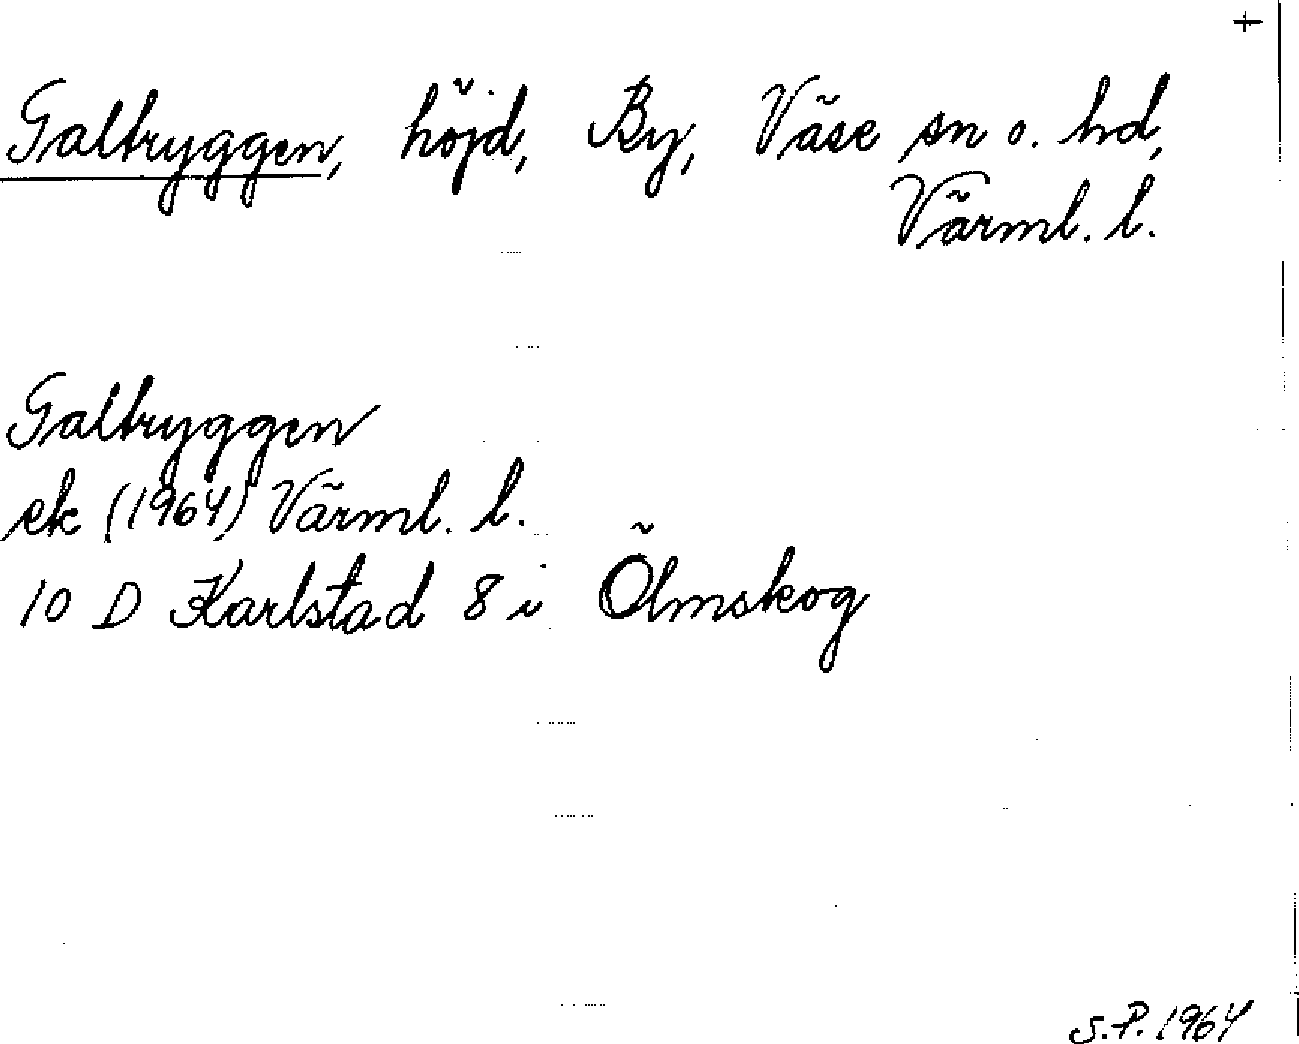 +
Galtryggen, höjd, By, Väse sn o. hd,
Värml. l.
Galtryggen
ek (1964) Värml. l.
10 D Karlstad 8 i Ölmskog
S.P. 1964